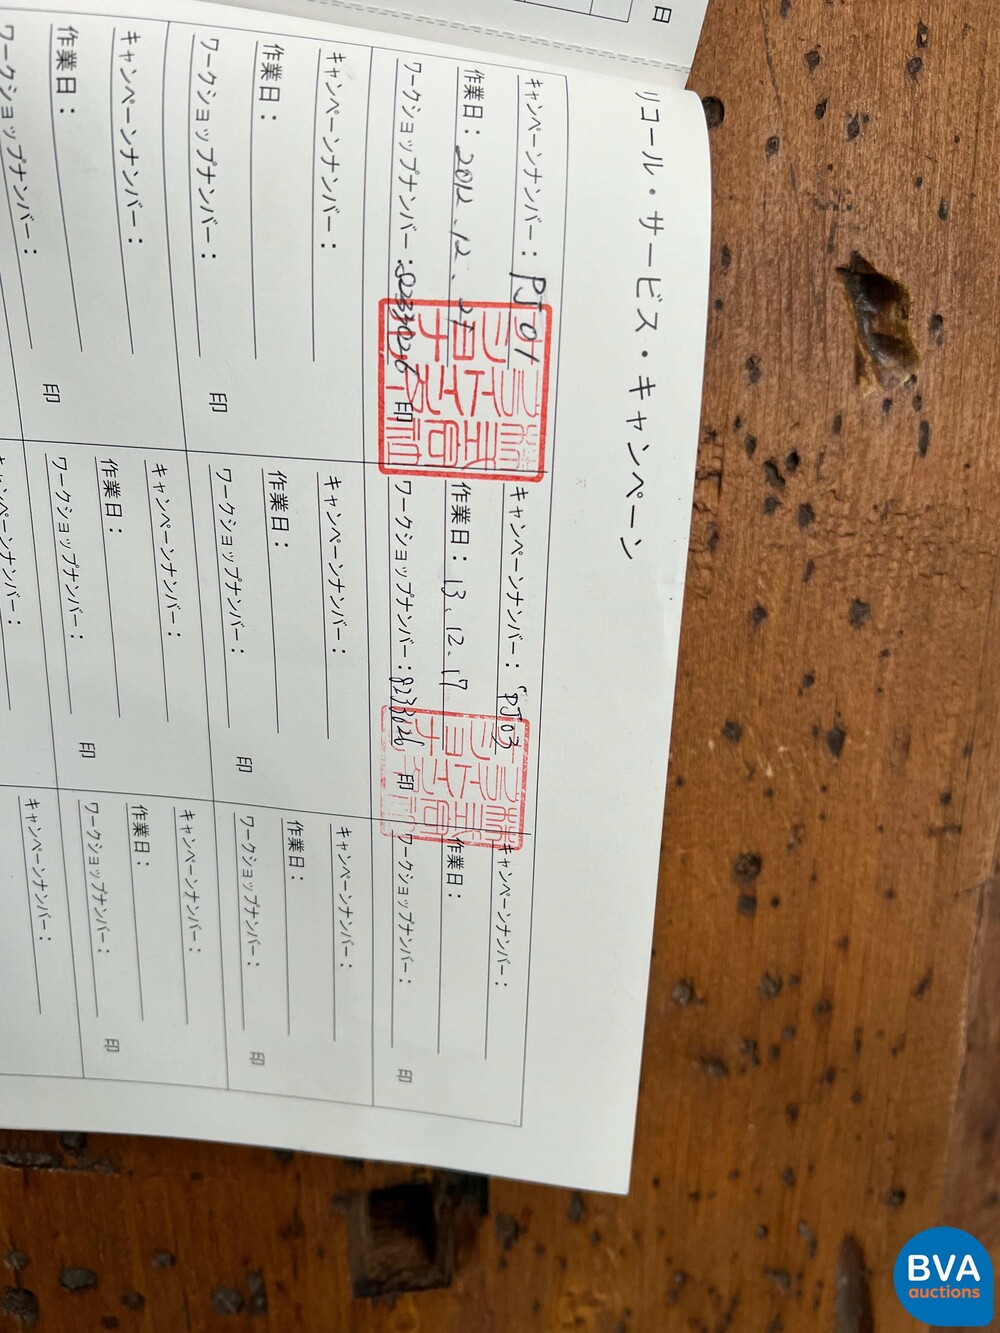 日
リコール・サービス・キャンペーン
キャンペーンナンバー: PJ01
作業日: 2012.12.21
ワークショップナンバー: 8233026 印
キャンペーンナンバー: PJ03
作業日: 13.12.17
ワークショップナンバー: 8233026 印
キャンペーンナンバー:
作業日:
ワークショップナンバー: 印
キャンペーンナンバー:
作業日:
ワークショップナンバー: 印
キャンペーンナンバー:
作業日:
ワークショップナンバー: 印
キャンペーンナンバー:
作業日:
ワークショップナンバー: 印
キャンペーンナンバー:
作業日:
ワークショップナンバー: 印
キャンペーンナンバー:
作業日:
ワークショップナンバー: 印
キャンペーンナンバー:
作業日:
ワークショップナンバー: 印
キャンペーンナンバー:
キャンペーンナンバー:
BVA
auctions